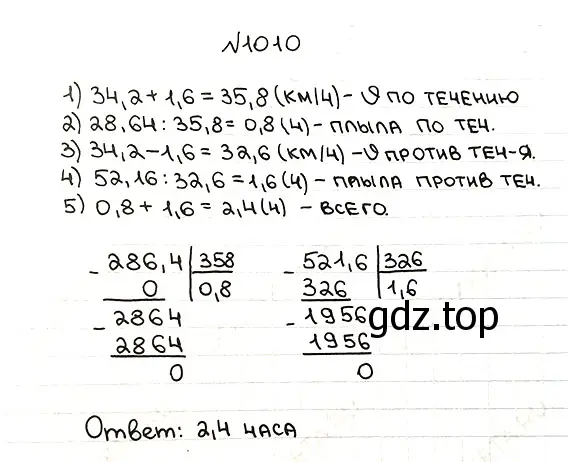 №1010
1) 34,2+1,6=35,8(км/ч)-υ по течению
2) 28,64:35,8=0,8(ч)-плыла по теч.
3) 34,2-1,6=32,6(км/ч)-υ против теч-я.
4) 52,16:32,6=1,6(ч)-плыла против теч.
5) 0,8+1,6=2,4(ч) - всего.
-286,4 358 -521,6 326
0 0,8 326 1,6
-2864 -1956
2864 1956
0 0
gdz.top
Ответ: 2,4 часа